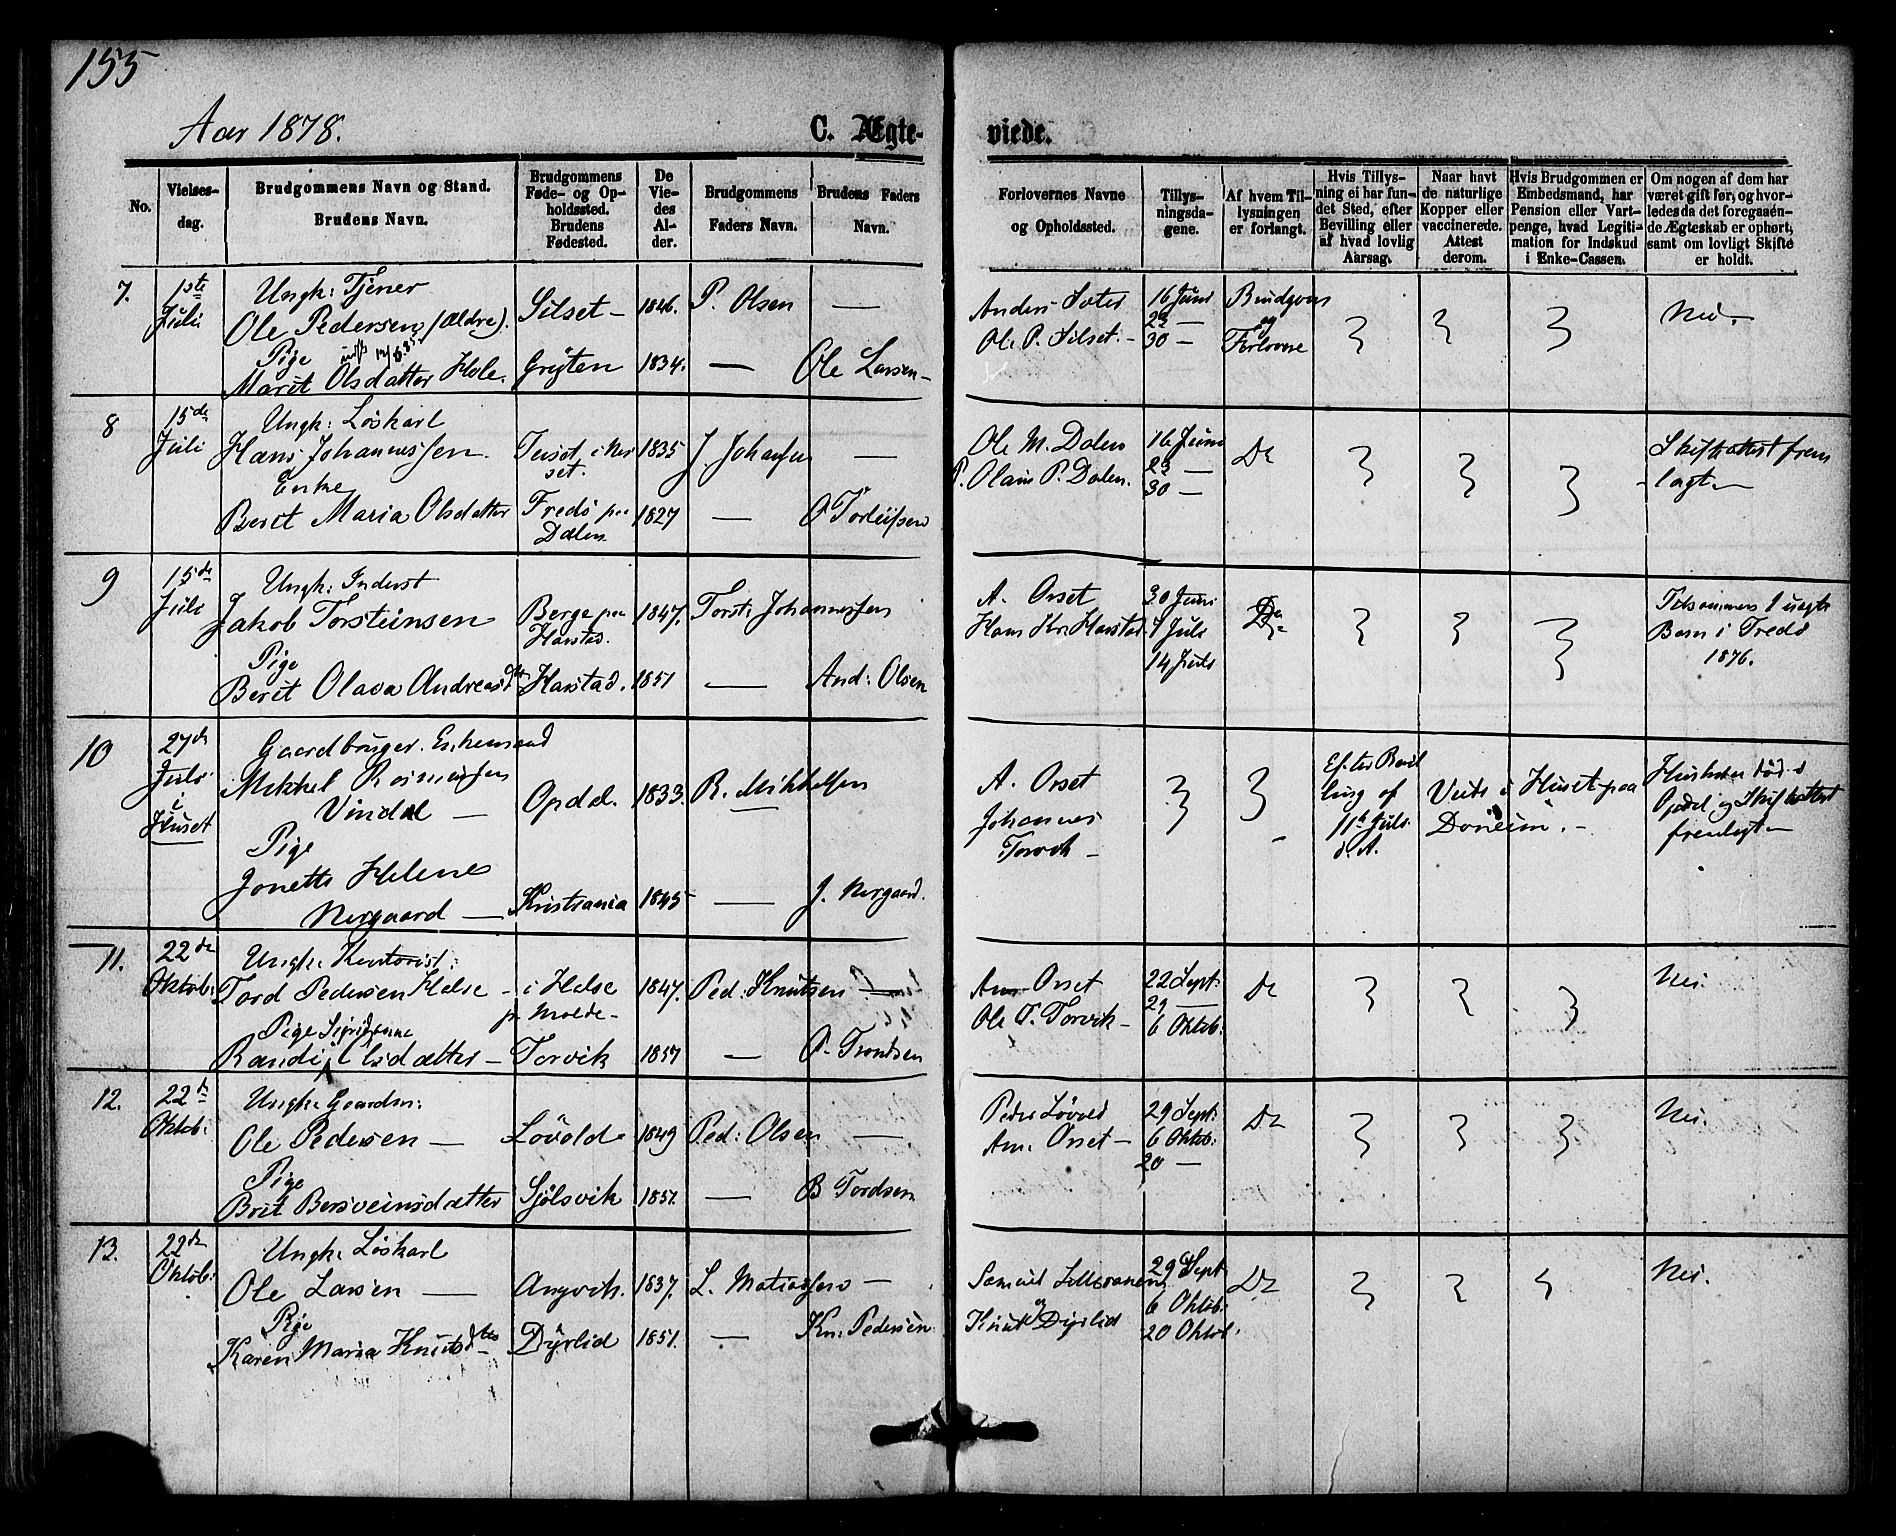 155
Aar 1878.
C. Ægte-
viede.
No.
Vielses-
dag.
Brudgommens Navn og Stand.
Brudens Navn.
Brudgommens
Føde- og Op-
holdssted.
Brudens
Fødested.
De
Vie-
des
Al-
der.
Brudgommens
Faders Navn.
Brudens Faders
Navn.
Forlovernes Navne
og Opholdssted.
Tillys-
ningsda-
gene.
Af hvem Til-
lysningen
er forlangt.
Hvis Tillys-
ning ei har fun-
det Sted, efter
Bevilling eller
af hvad lovlig
Aarsag.
Naar havt
de naturlige
Kopper eller
vaccinerede.
Attest
derom.
Hvis Brudgommen er
Embedsmand, har
Pension eller Vart-
penge, hvad Legiti-
mation for Indskud
i Enke-Cassen.
Om nogen af dem har
været gift før, og hvor-
ledes da det foregaaen-
de Ægteskab er ophørt,
samt om lovligt Skifte
er holdt.
7.
1ste
Juli
Ungk: Tjener
Ole Pedersen (ældre).
Pige
Marit Olsdatter Hole.
Silset -
Gryten
1846.
1834.
P. Olsen —
— Ole Larsen -
Anders Sæter
Ole P. Silset. -
16 Juni
23 —
30 —
Brudgom
og
Forlovere
Nei. -
8
15de
Juli
Ungk: Løskarl
Hans Johannessen.
Enke
Berit Maria Olsdatter
Fredø paa
Dalen
1835
1827
J. Johansen —
— O Torleifsen
Ole M. Dalen
P. Olaus P. Dalen.
16 Juni
23 —
30 —
Do
Skifteattest frem
lagt -
9
15de
Juli
Ungk: Inderst
Jakob Torsteinsen
Pige
Berit Olava Andreasdtr
Berge paa
Harstad.
Harstad.
1847.
1851
Torst: Johannessen
— And: Olsen
A. Orset
Hans Hr. Harstad.
30 Juni
7 Juli
14 Juli
Do
Tilsammens 1 uægte
Barn i Fredø
1876.
10
27de
Juli
i
Huset
Gaardbruger. Enkemand
Mikkel Rasmussen
Vindal —
Pige
Jonette Helene
Nergaard —
Opdal.
Kristiania
1833.
1845
R. Mikkelsen
— J. Nergaard.
A. Orset
Johannes
Torvik -
Efter Bevil
ling af
11te Juli
d. A.
Viede i Huset paa
Doneim. -
Hustruen død i
Opdal og Skifteattest
fremlagt -
11.
22de
Oktob:
Ungk: Kontorist:
Tord Pedersen Helse -
Pige Sigridanne
Randi Olsdatter -
i Helse
pr Molde -
Torvik
1847.
1857
Ped: Knutsen —
— O. Trondsen
Am Orset
Ole T. Torvik -
22 Sept:
29 —
6 Oktob:
Do
Nei.
12.
22de
Oktob:
Ungk: Gaardm:
Ole Pedersen —
Pige
Brit Bersveinsdatter
Løvold -
Sjølsvik
1849
1857.
Ped: Olsen —
— B Tordsen
Peder Løvold
Am. Orset -
29 Sept:
6 Oktob:
20 —
Do
Nei.
13.
22de
Oktob:
Ungk: Løskarl
Ole Larsen —
Pige
Karen Maria Knutsdtr
Angvik.
Dyrlid
1837.
1851.
L. Matiassen —
— Kn: Pedersen
Samuel
og
Knut Dyrlid
29 Sept
6 Oktob:
20 Oktob.
Do
Nei.